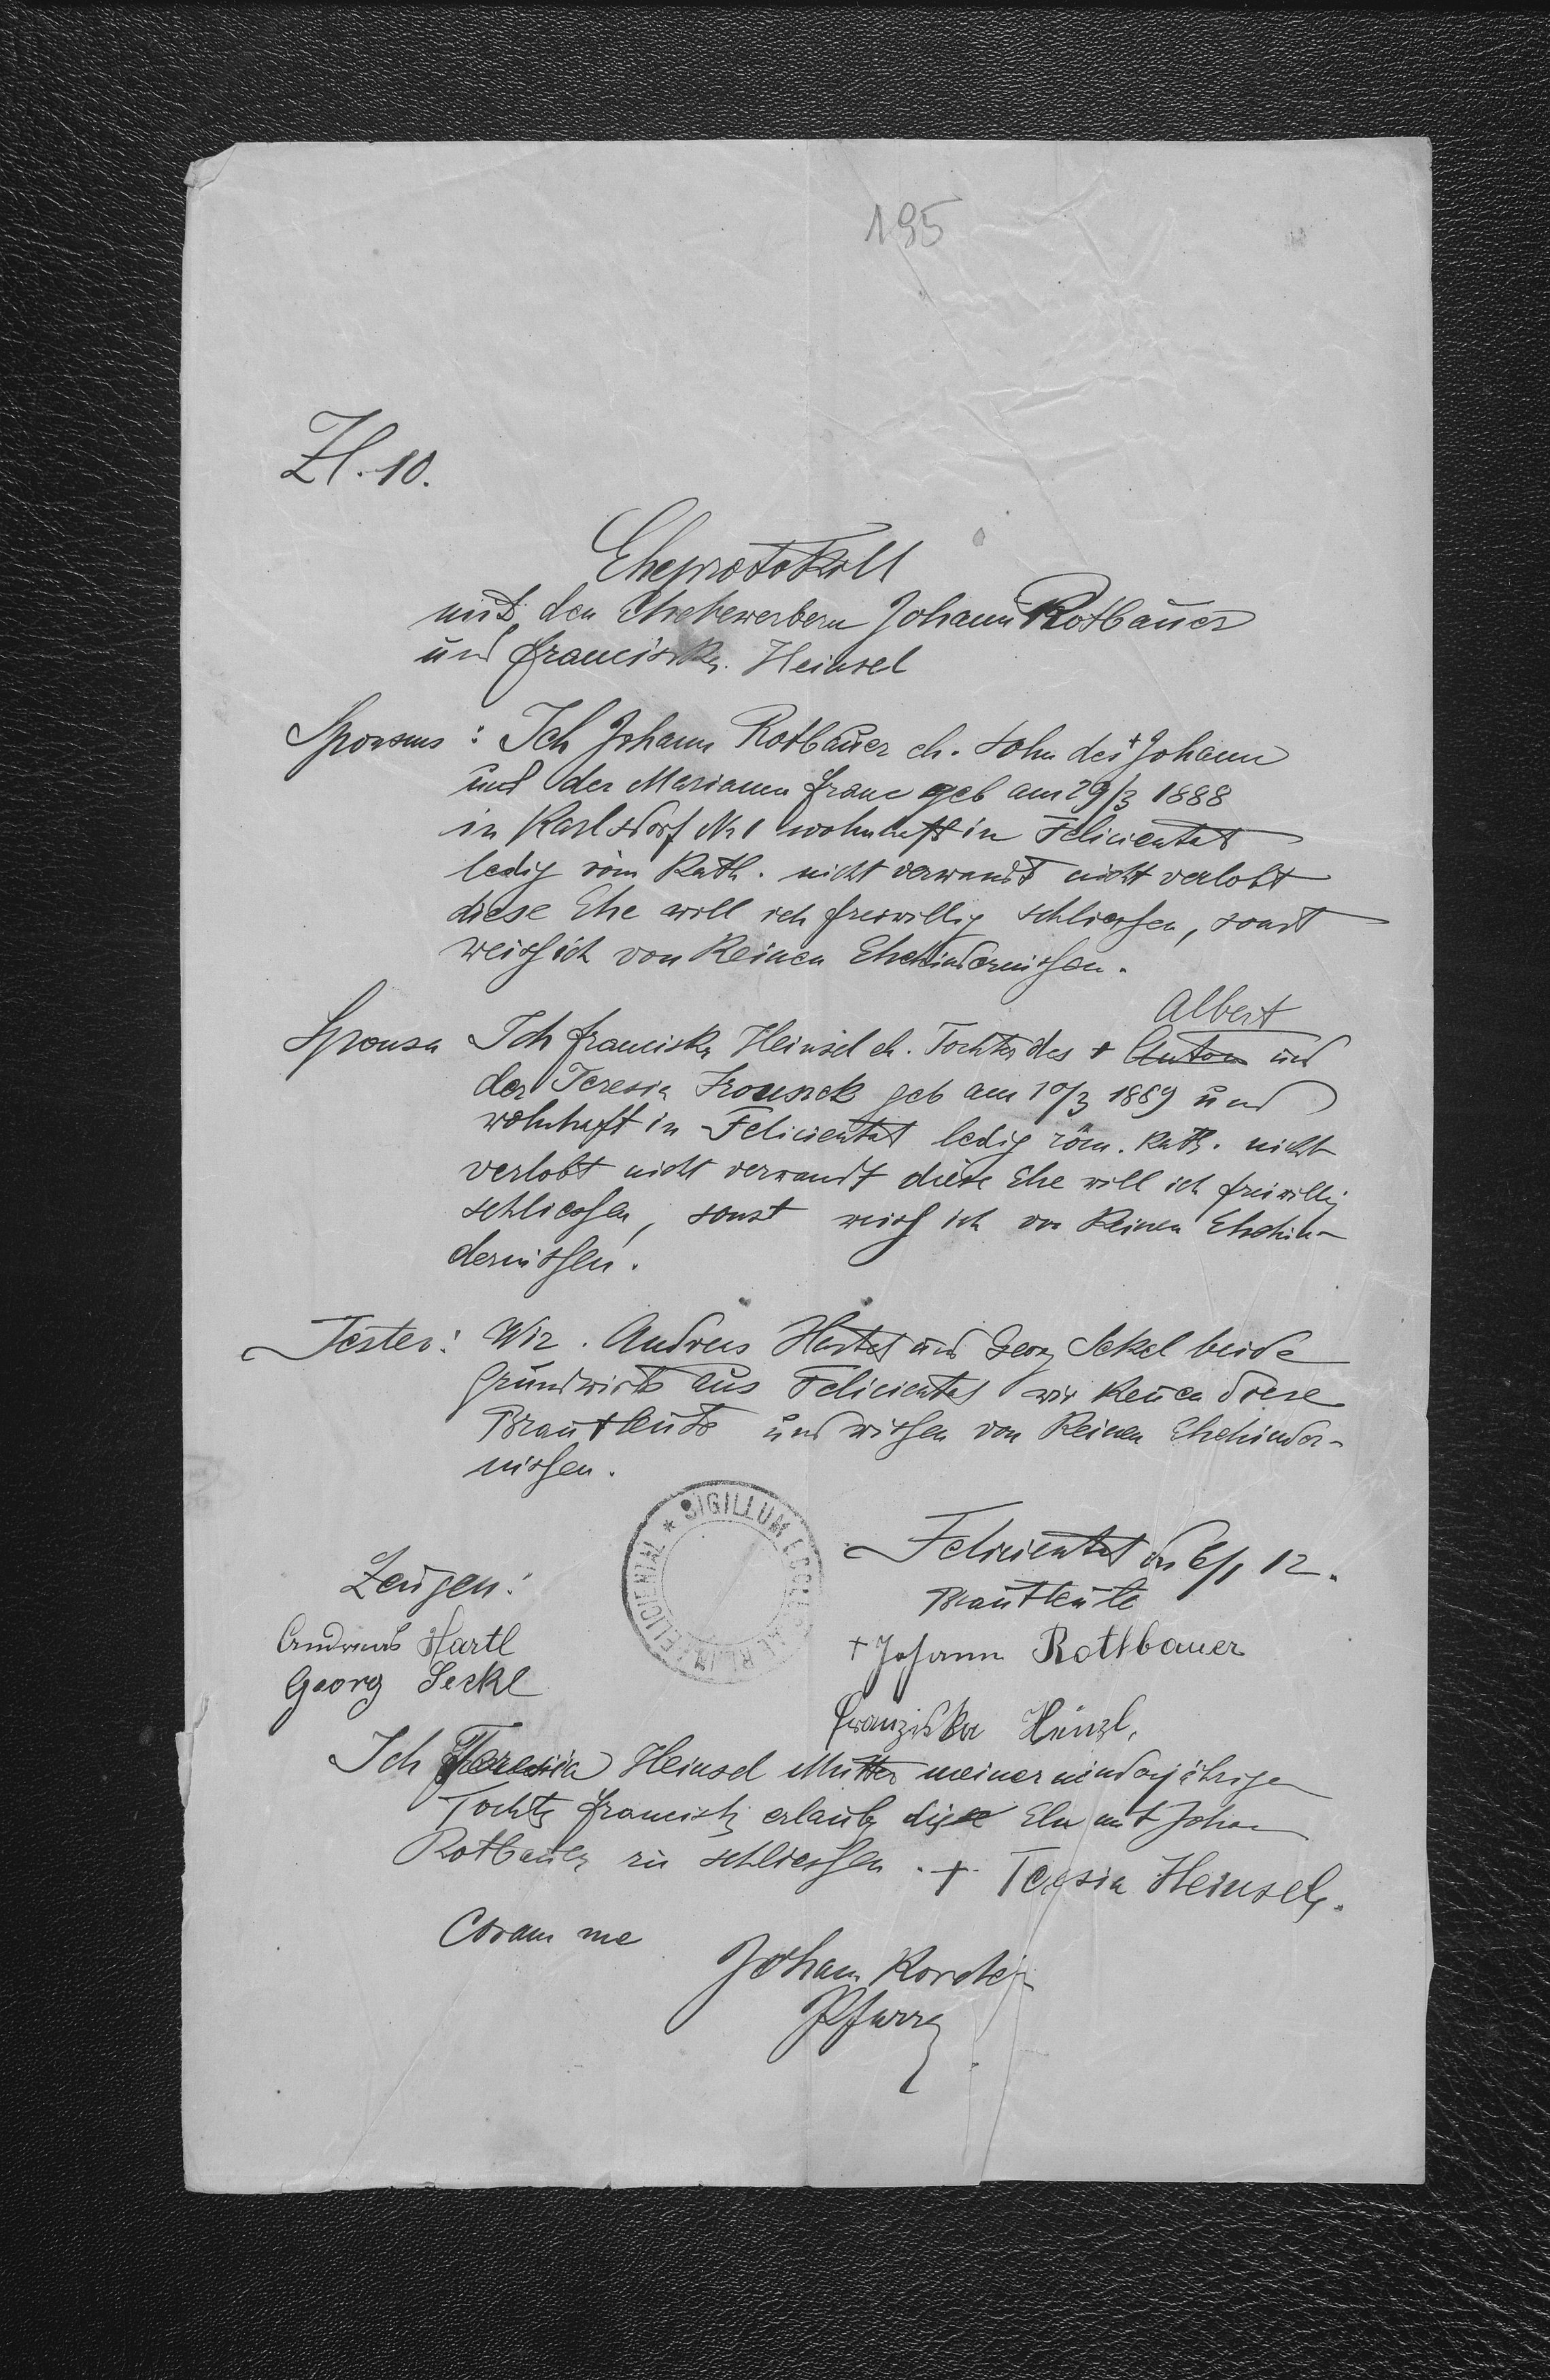 195
Zl. 10.
Eheprotokoll
mit den Ehebewerbern Johann Rotbauer
und Franciska Heinsel
Sponsus : Ich Johann Rotbauer eh. Sohn des + Johann
und der Mariana Franc geb am 29/3 1888
in Karlsdorf Nr 1 wohnhaft in Felicienthal
ledig röm Kath. nicht verwandt nicht verlobt
diese Ehe will ich freiwillig schliessen, sonst
weiss ich von Keinen Ehehindernissen.
Albert
Sponsa Ich Franciska Heinsel eh. Tochter des + Anton und
der Teresia geb am 10/3 1889 und
wohnhaft in Felicienthal ledig röm. Kath. nicht
verlobt nicht verwandt diese Ehe will ich freiwillig
schliessen, sonst weiss ich von Keinen Ehehin-
dernissen.
Testes: Wir . Andreas Hartel und Georg Sekel beide
Grundwirte aus Felicienthal wir Kenen diese
Brautleute und wissen von Keinen Ehehinder-
nissen.
* SIGILLUM ECCLESIAE FELICIENTAL
Felicienthal den 6/1 12.
Zeugen:
Brautleute
Andreas Hartl
+ Johann Rothbauer
Georg Seckl
Franziska Heinzl,
Ich Teresia Heinsel Mutter meiner minderjährigen
Tochter Francisk erlaube diese Ehe mit Johan
Rotbauer zu schliessen . + Teresia Heinsel.
Coram me
Johan
Pfarrer